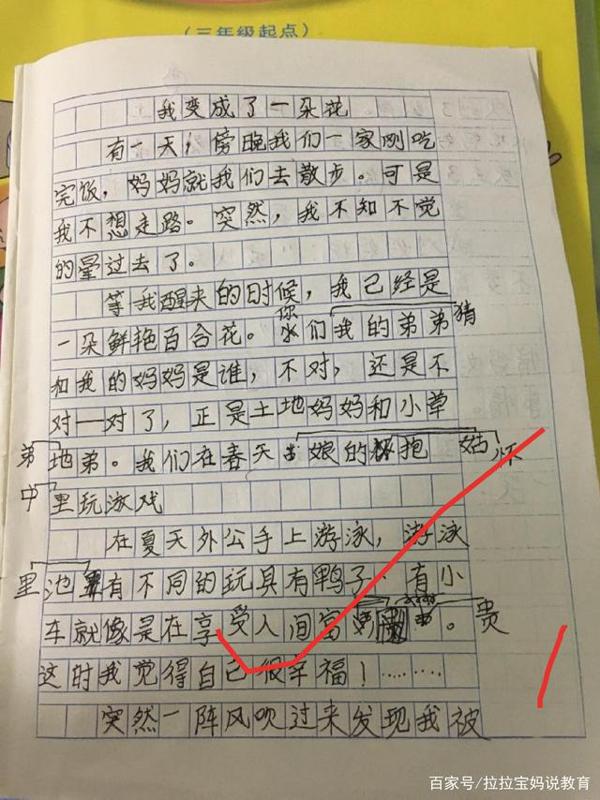 (三年级起点)
我变成了一朵花
有一天，傍晚我们一家刚吃
完饭，妈妈就我们去散步。可是
我不想走路。突然，我不知不觉
的晕过去了。
等我醒来的日时候，我已经是
一朵鲜艳百合花。你们我的弟弟猜
和我的妈妈是谁，不对，还是不
对一对了，正是土地妈妈和小草
弟地弟。我们在春天娘的抱姑怀
中里玩泳戏
在夏天外公手上游泳，游泳
里池有不同的玩具有鸭子 有小
车就像是在享受人间富贵。
这时我觉得自己很幸福！……
突然一阵风吹过来发现我被
百家号/拉拉宝妈说教育